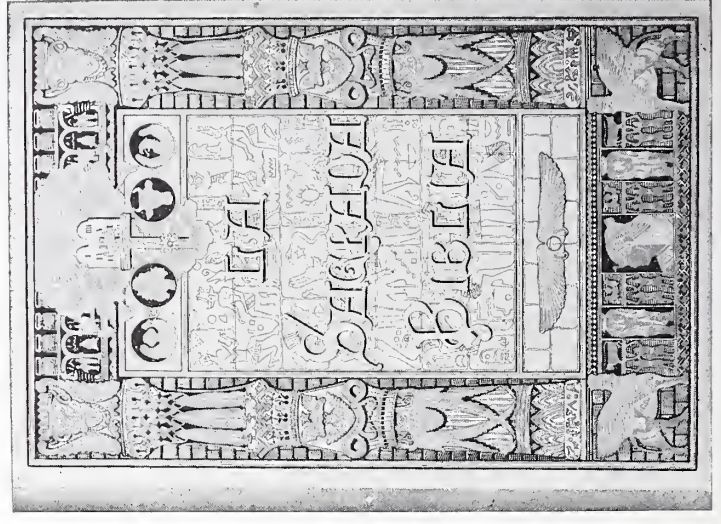 LA
SAGRADA
BIBLIA